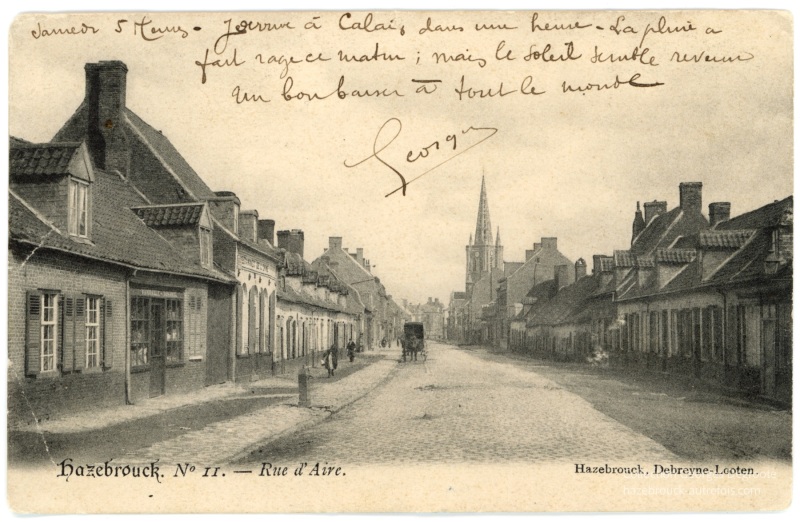 Samedi 5 heures - J'arrive à Calais dans une heure - La pluie a
fait rage ce matin ; mais le soleil semble revenir
Un bon baiser à tout le monde
Georges
Hazebrouck. No 11. – Rue d'Aire.
Hazebrouck, Debreyne-Looten.